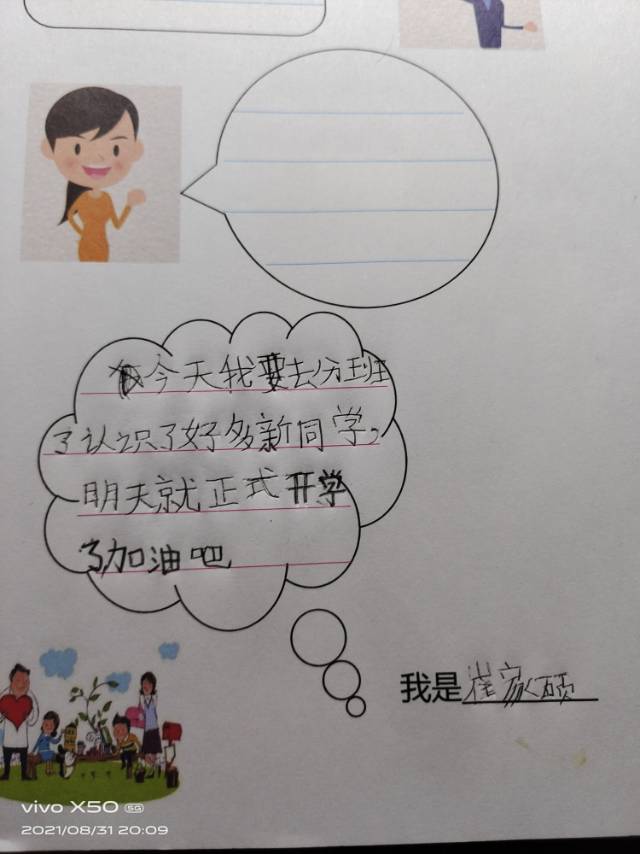 今天我要去分班
了认识了好多新同学,
明天就正式开学
了加油吧
我是崔家硕
vivo X50 5G
2021/08/31 20:09